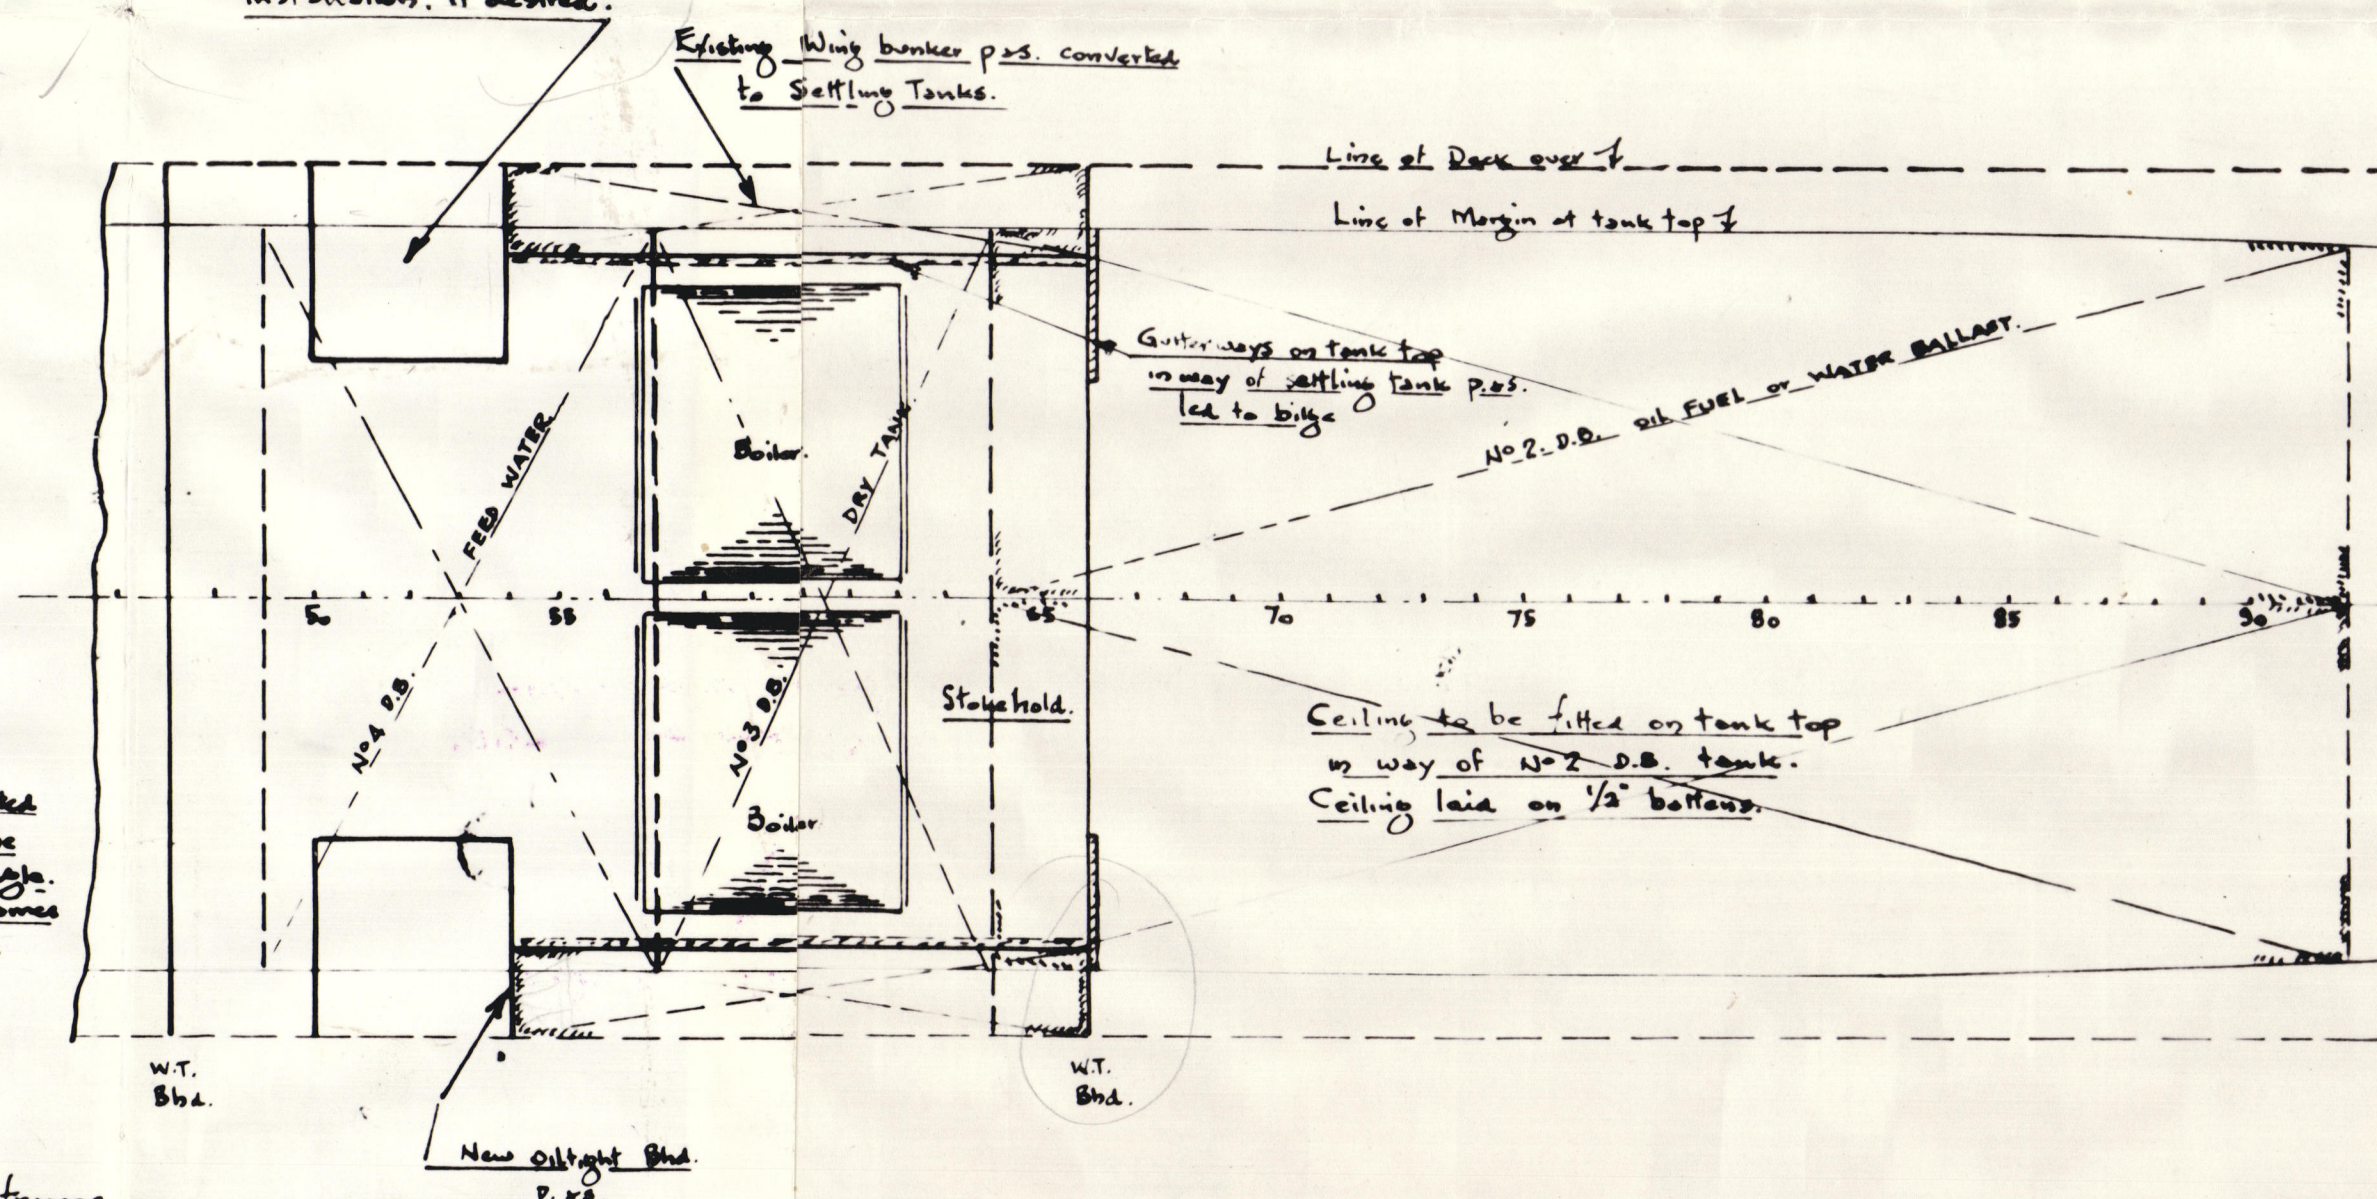 if desired.
Existing Wing bunker p&s. converted
to Settling Tanks.
Line of Deck over
Line of Margin at tank top
Gutterways on tank top
in way of settling tank p.&s.
led to bilge
No 2. D.B. OIL FUEL or WATER BALLAST.
FEED WATER
No 4 D.B.
Boiler.
DRY TANK
No 3 D.B.
50 55 65 70 75 80 85 90
Stokehold.
Boiler
Ceiling to be fitted on tank top
in way of No 2 D.B. tank.
Ceiling laid on 1/2" battens.
W.T.
Bhd.
W.T.
Bhd.
New Oiltight Bhd.
p.&s.